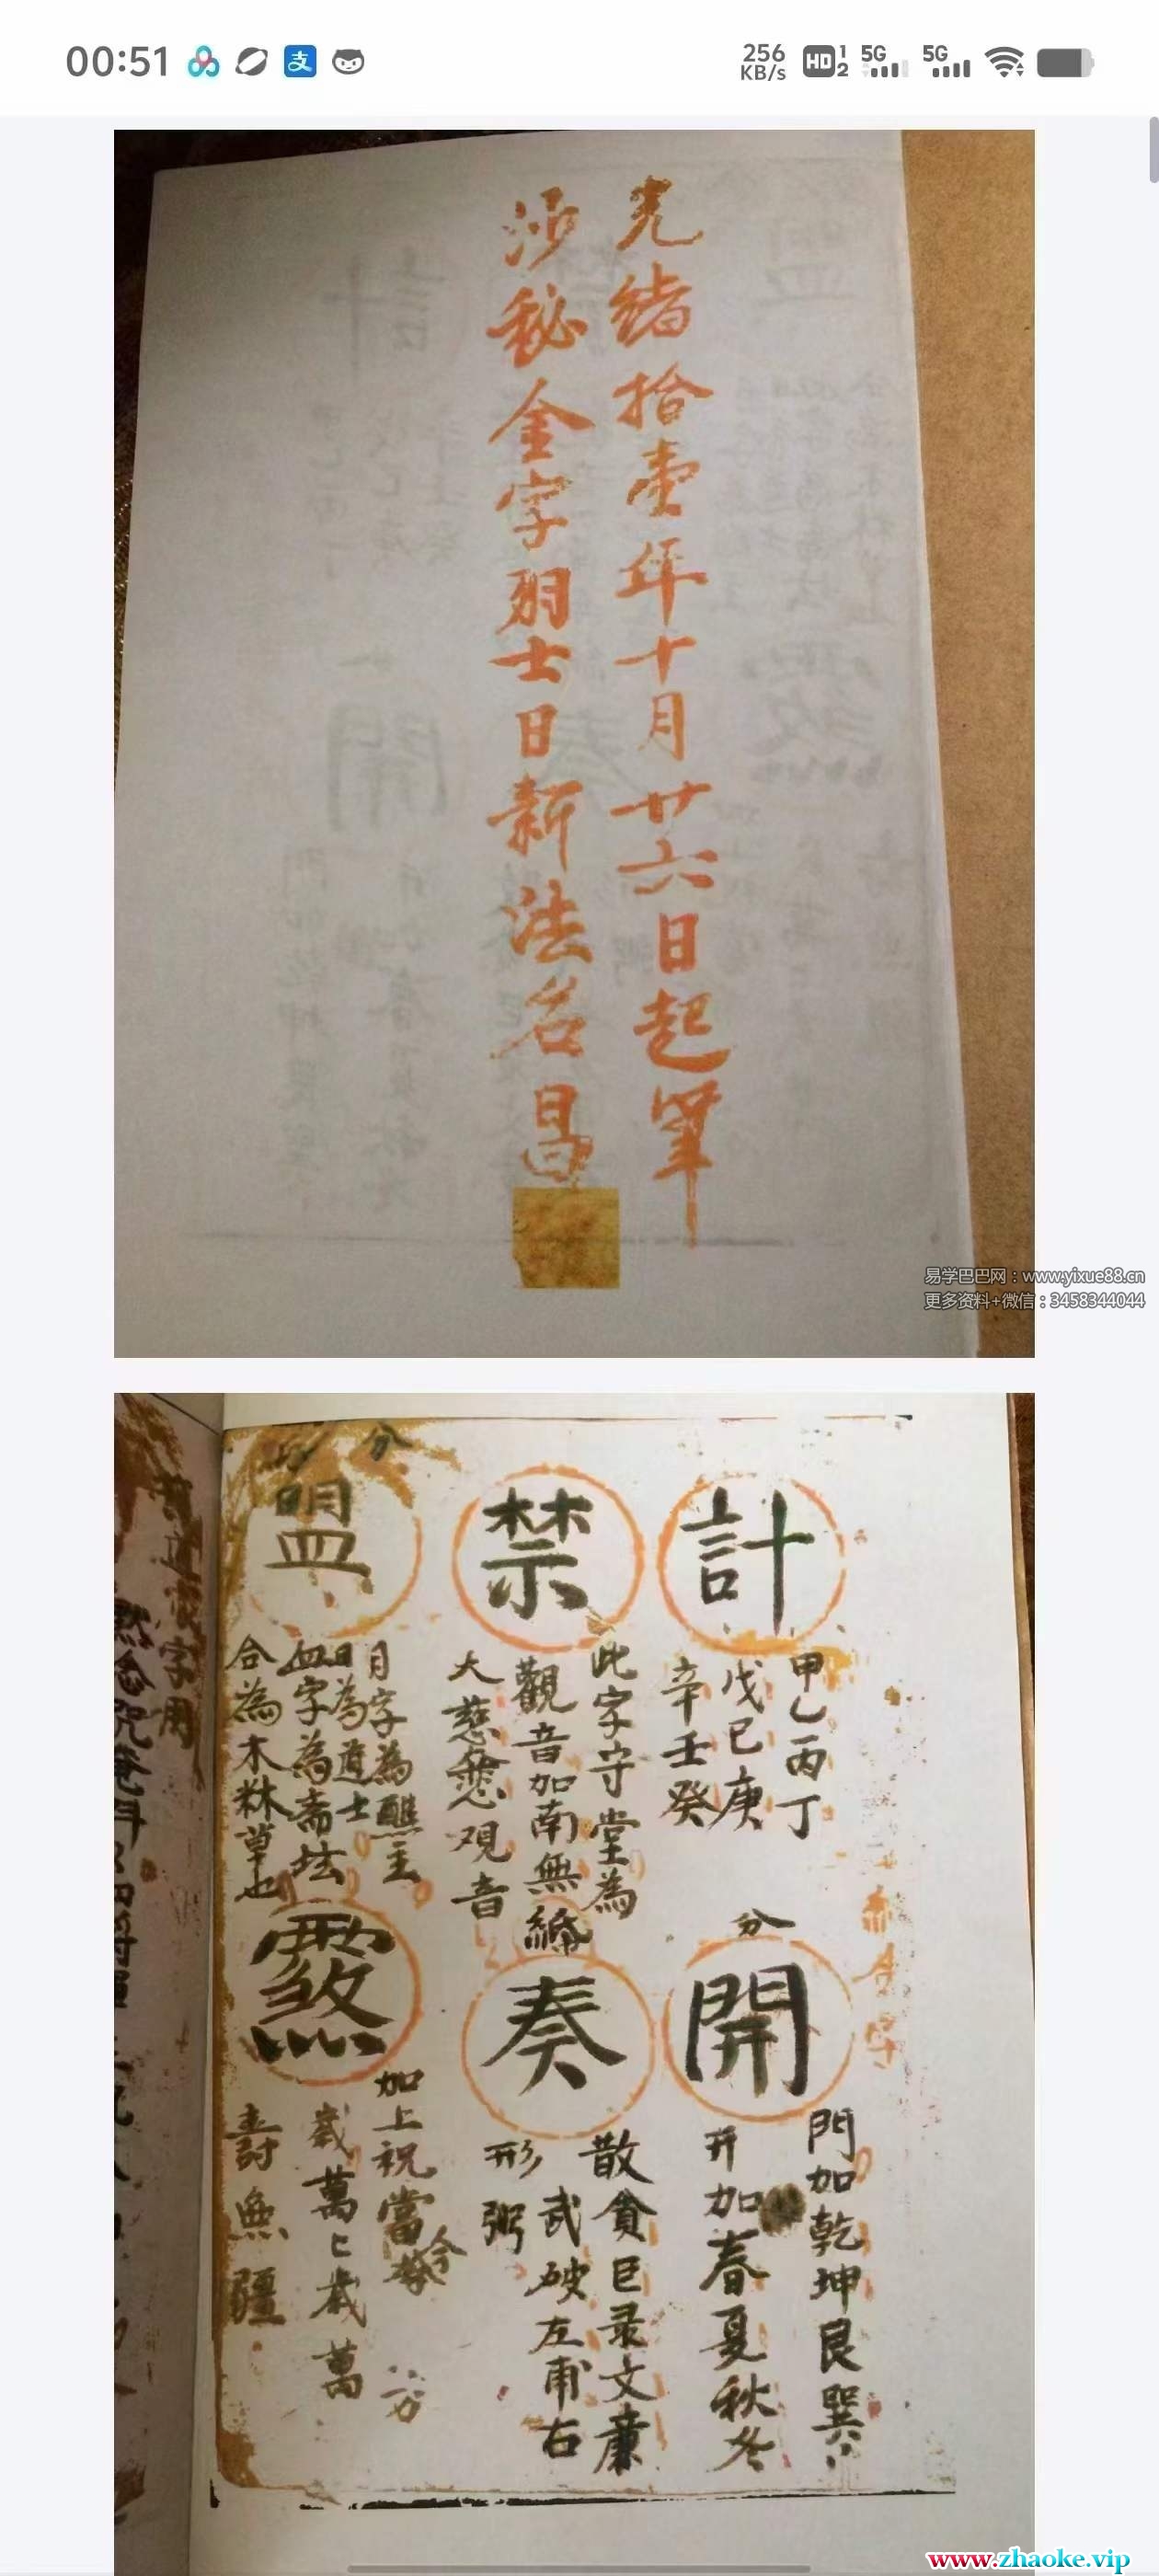 00:51
256 KB/s HD 1 2 5G 5G
支
光緒拾壹年十月廿六日起筆
秘金字羽士日新法名昌
易学巴巴网：www.yixue88.cn
更多资料+微信：3458344044
計
甲乙丙丁
戊己庚
辛壬癸
禁
此字守堂為
觀音加南無
大慈悲观音
分
盟
月字為醮主
日為道士
血字為斋坛
合為木林草也
分
開
門加乾坤艮巽
开加春夏秋冬
奏
散貪巨录文廉
武破左甫右
形
粥
煞
加上祝當
歲萬歲萬
壽無疆
字用
www.zhaoke.vip